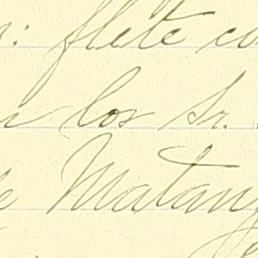 : flete co
los Sr.
Matanz